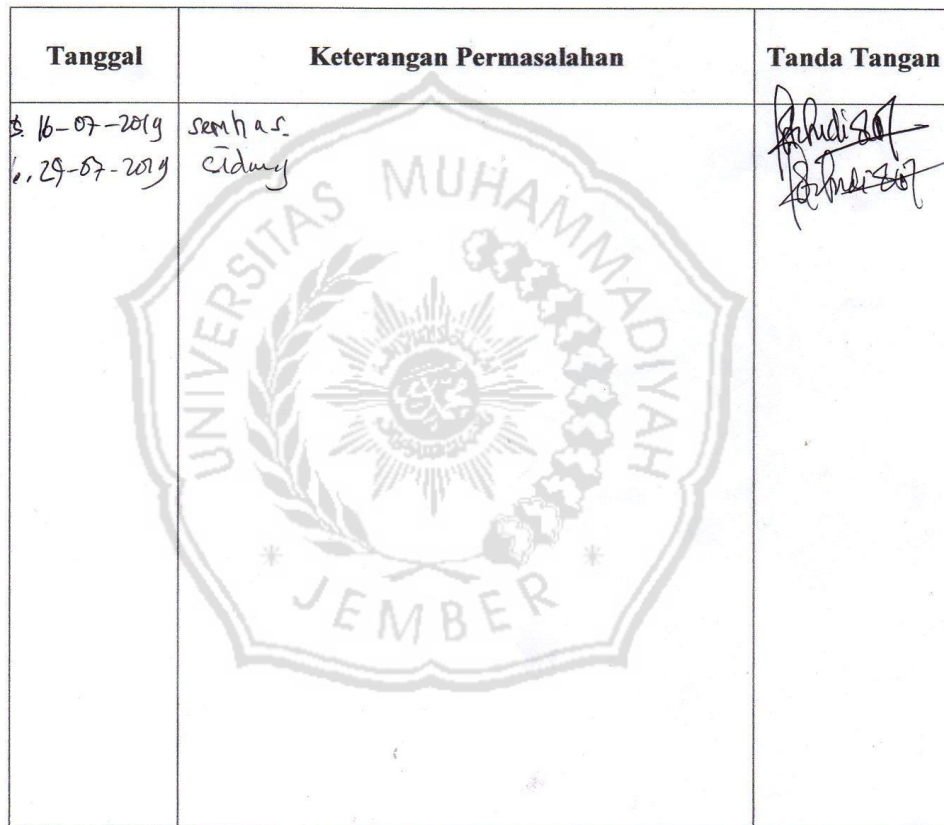 Tanggal Keterangan Permasalahan Tanda Tangan
16-07-2019 semhas.
29-07-2019 sidang
UNIVERSITAS MUHAMMADIYAH
JEMBER